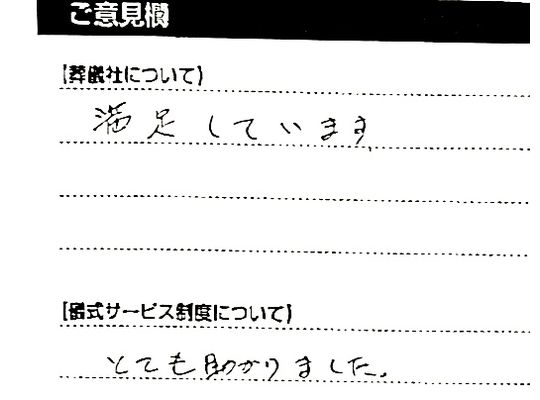 ご意見欄
【葬儀社について】
満足しています
【儀式サービス制度について】
とても助かりました。